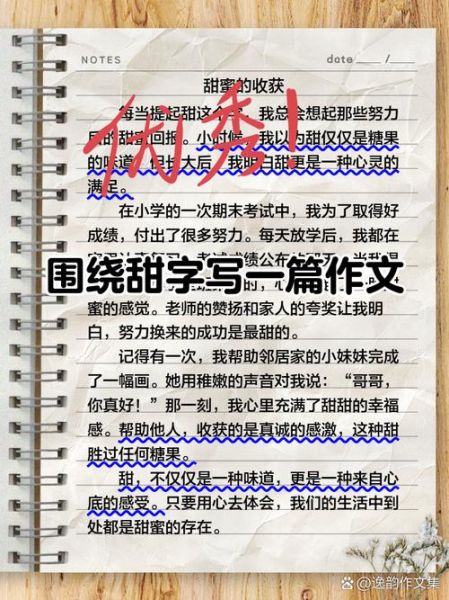 NOTES
date ____ /____
甜蜜的收获
优秀！
每当提起甜这 ，我总会想起那些努力
后的甜 回报。小时候，我以为甜仅仅是糖果
的味道。但长大后，我明白甜更是一种心灵的
满足。
在小学的一次期末考试中，我为了取得好
成绩，付出了很多努力。每天放学后，我都在
围绕甜字写一篇作文
蜜的感觉。老师的赞扬和家人的夸奖让我明
白，努力换来的成功是最甜的。
记得有一次，我帮助邻居家的小妹妹完成
了一幅画。她用稚嫩的声音对我说：“哥哥，
你真好！”那一刻，我心里充满了甜甜的幸福
感。帮助他人，收获的是真诚的感激，这种甜
胜过任何糖果。
甜，不仅仅是一种味道，更是一种来自心
底的感受。只要用心去体会，我们的生活中到
处都是甜蜜的存在。
@逸韵作文集